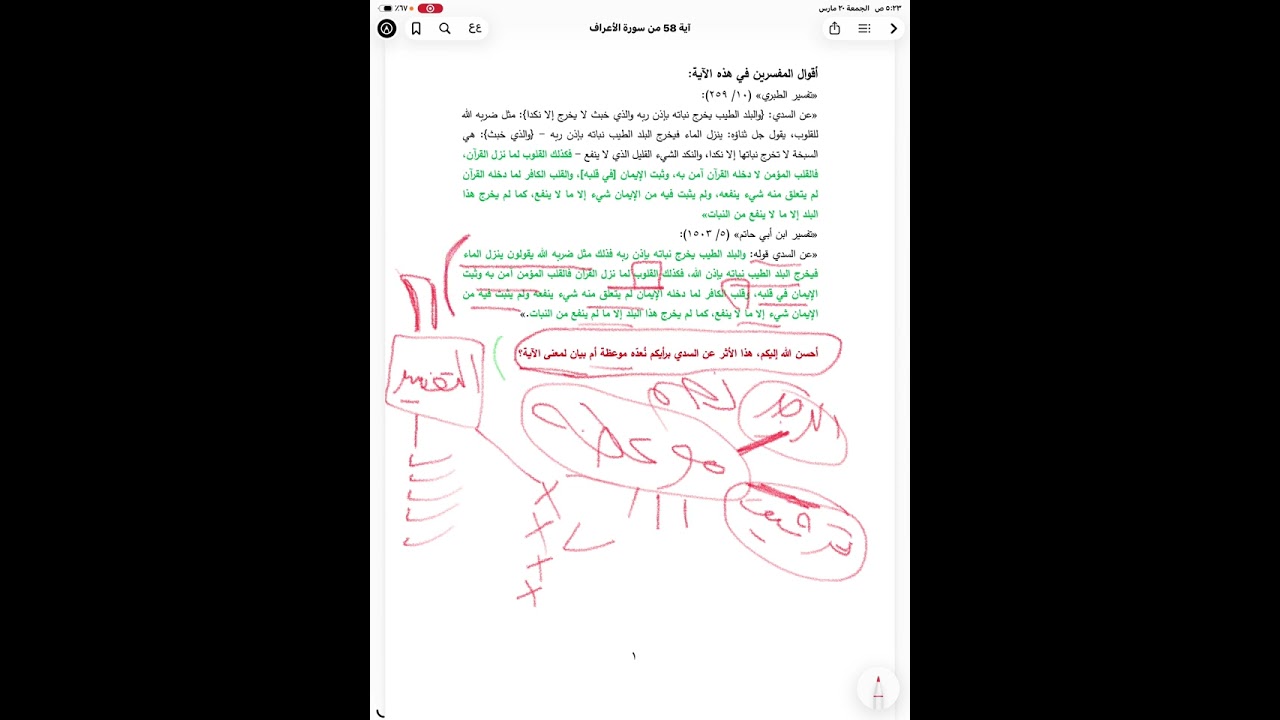 ٥:٢٣ ص الجمعة ٢٠ مارس
٦٧٪
آية 58 من سورة الأعراف
عع
أقوال المفسرين في هذه الآية:
«تفسير الطبري» (١٠/ ٢٥٩):
«عن السدي: {والبلد الطيب يخرج نباته بإذن ربه والذي خبث لا يخرج إلا نكدا}: مثل ضربه الله
للقلوب، يقول جل ثناؤه: ينزل الماء فيخرج البلد الطيب نباته بإذن ربه – {والذي خبث}: هي
السبخة لا تخرج نباتها إلا نكدا، والنكد الشيء القليل الذي لا ينفع – فكذلك القلوب لما نزل القرآن،
فالقلب المؤمن لا دخله القرآن آمن به، وثبت الإيمان [في قلبه]، والقلب الكافر لما دخله القرآن
لم يتعلق منه شيء ينفعه، ولم يثبت فيه من الإيمان شيء إلا ما لا ينفع، كما لم يخرج هذا
البلد إلا ما لا ينفع من النبات»
«تفسير ابن أبي حاتم» (٥/ ١٥٠٣):
«عن السدي قوله: والبلد الطيب يخرج نباته بإذن ربه فذلك مثل ضربه الله يقولون ينزل الماء
فيخرج البلد الطيب نباته بإذن الله، فكذلك القلوب لما نزل القرآن فالقلب المؤمن آمن به وثبت
الإيمان في قلبه، وقلب الكافر لما دخله الإيمان لم يتعلق منه شيء ينفعه ولم يثبت فيه من
الإيمان شيء إلا ما لا ينفع، كما لم يخرج هذا البلد إلا ما لم ينفع من النبات.»
أحسن الله إليكم، هذا الأثر عن السدي برأيكم نُعدّه موعظة أم بيان لمعنى الآية؟
التفسير
موعظة
١